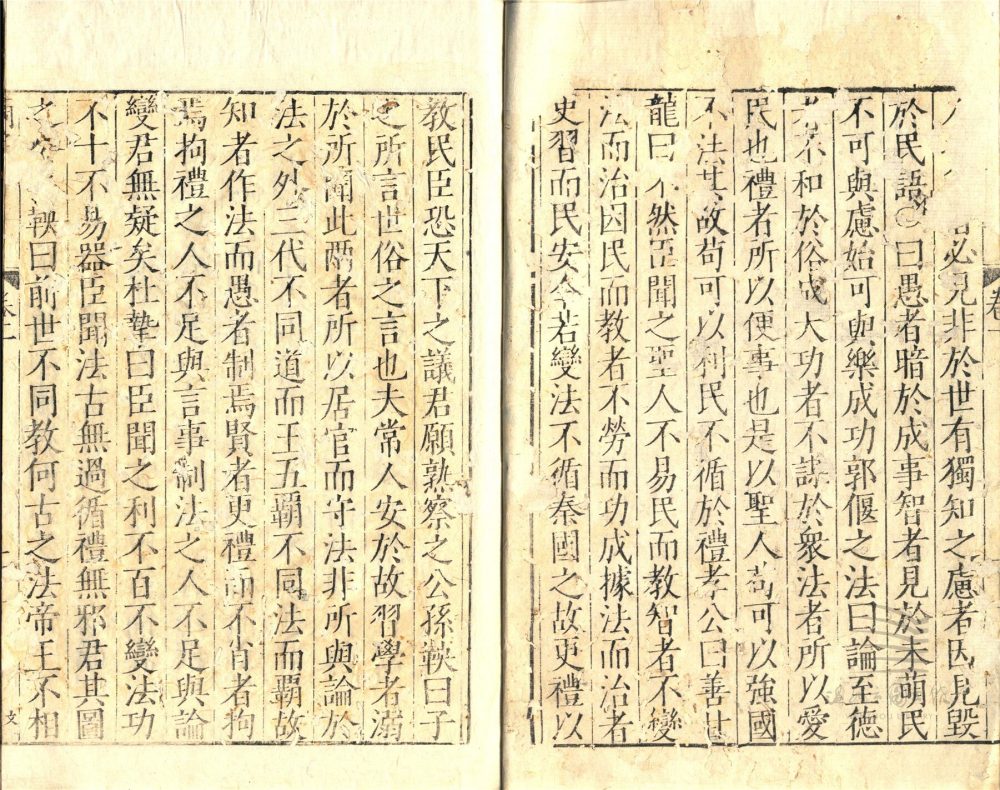 必見非於世有獨知之慮者因見毀
於民語○曰愚者暗於成事智者見於未萌民
不可與慮始可與樂成功郭偃之法曰論至德
者不和於俗成大功者不謀於衆法者所以愛
民也禮者所以便事也是以聖人苟可以強國
不法其故苟可以利民不循於禮孝公曰善甘
龍曰不然臣聞之聖人不易民而教智者不變
法而治因民而教者不勞而功成據法而治者
吏習而民安今若變法不循秦國之故更禮以
教民臣恐天下之議君願熟察之公孫鞅曰子
之所言世俗之言也夫常人安於故習學者溺
於所聞此兩者所以居官而守法非所與論於
法之外三代不同道而王五覇不同法而覇故
知者作法而愚者制焉賢者更禮而不肖者拘
焉拘禮之人不足與言事制法之人不足與論
變君無疑矣杜摯曰臣聞之利不百不變法功
不十不易器臣聞法古無過循禮無邪君其圖
之公鞅曰前世不同教何古之法帝王不相
卷一